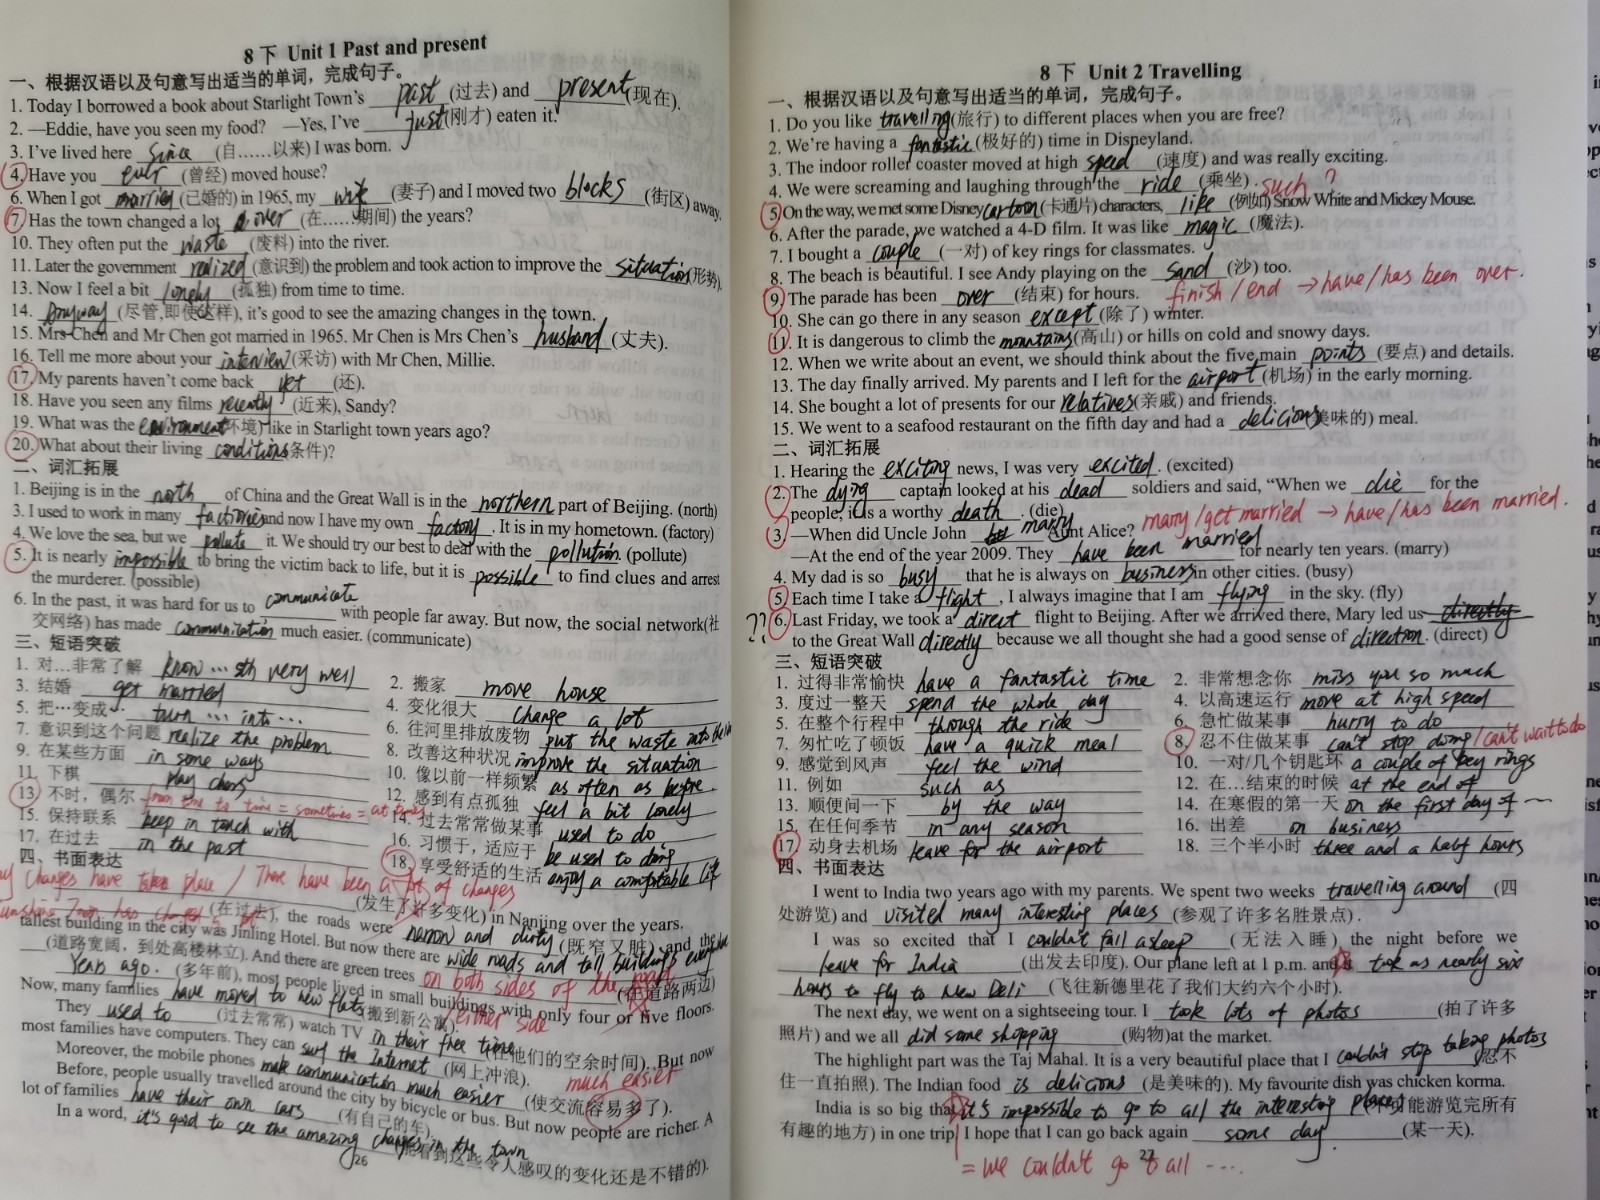 8下 Unit 1 Past and present
一、根据汉语以及句意写出适当的单词，完成句子。
1. Today I borrowed a book about Starlight Town's past (过去) and present (现在).
2. —Eddie, have you seen my food? —Yes, I've just (刚才) eaten it.
3. I've lived here since (自……以来) I was born.
4. Have you ever (曾经) moved house?
6. When I got married (已婚的) in 1965, my wife (妻子) and I moved two blocks (街区) away.
7. Has the town changed a lot over (在……期间) the years?
10. They often put the waste (废料) into the river.
11. Later the government realized (意识到) the problem and took action to improve the situation (形势).
13. Now I feel a bit lonely (孤独) from time to time.
14. Anyway (尽管,即使这样), it's good to see the amazing changes in the town.
15. Mrs Chen and Mr Chen got married in 1965. Mr Chen is Mrs Chen's husband (丈夫).
16. Tell me more about your interview (采访) with Mr Chen, Millie.
17. My parents haven't come back yet (还).
18. Have you seen any films recently (近来), Sandy?
19. What was the environment (环境) like in Starlight town years ago?
20. What about their living conditions (条件)?
二、词汇拓展
1. Beijing is in the north of China and the Great Wall is in the northern part of Beijing. (north)
3. I used to work in many factories and now I have my own factory. It is in my hometown. (factory)
4. We love the sea, but we pollute it. We should try our best to deal with the pollution. (pollute)
5. It is nearly impossible to bring the victim back to life, but it is possible to find clues and arrest
the murderer. (possible)
6. In the past, it was hard for us to communicate with people far away. But now, the social network(社
交网络) has made communication much easier. (communicate)
三、短语突破
1. 对…非常了解 know … sth very well
2. 搬家 move house
3. 结婚 get married
4. 变化很大 change a lot
5. 把…变成… turn … into …
6. 往河里排放废物 put the waste into the
7. 意识到这个问题 realize the problem
8. 改善这种状况 improve the situation
9. 在某些方面 in some ways
10. 像以前一样频繁 as often as before
11. 下棋 play chess
12. 感到有点孤独 feel a bit lonely
13. 不时，偶尔 from time to time = sometimes = at times
14. 过去常常做某事 used to do
15. 保持联系 keep in touch with
16. 习惯于，适应于 be used to doing
17. 在过去 in the past
18. 享受舒适的生活 enjoy a comfortable life
四、书面表达
changes have taken place / There have been a lot of changes
(发生了许多变化) in Nanjing over the years.
(在过去), the roads were narrow and dirty (既窄又脏) and the
tallest building in the city was Jinling Hotel. But now there are wide roads and tall buildings
(道路宽阔，到处高楼林立). And there are green trees on both sides of the road (在道路两边)
/either side
Years ago. (多年前), most people lived in small buildings with only four or five floors.
Now, many families have moved to new flats (搬到新公寓).
They used to (过去常常) watch TV in their free time (在他们的空余时间). But now
most families have computers. They can surf the Internet (网上冲浪).
much easier
Moreover, the mobile phones make communication much easier (使交流容易多了).
Before, people usually travelled around the city by bicycle or bus. But now people are richer. A
lot of families have their own cars (有自己的车).
In a word, it's good to see the amazing changes in the town
(能看到这些令人感叹的变化还是不错的).
26
8下 Unit 2 Travelling
一、根据汉语以及句意写出适当的单词，完成句子。
1. Do you like travelling (旅行) to different places when you are free?
2. We're having a fantastic (极好的) time in Disneyland.
3. The indoor roller coaster moved at high speed (速度) and was really exciting.
4. We were screaming and laughing through the ride (乘坐).
such ?
5. On the way, we met some Disney cartoon (卡通片) characters, like (例如) Snow White and Mickey Mouse.
6. After the parade, we watched a 4-D film. It was like magic (魔法).
7. I bought a couple (一对) of key rings for classmates.
8. The beach is beautiful. I see Andy playing on the sand (沙) too.
9. The parade has been over (结束) for hours. finish / end → have/has been over.
10. She can go there in any season except (除了) winter.
11. It is dangerous to climb the mountains (高山) or hills on cold and snowy days.
12. When we write about an event, we should think about the five main points (要点) and details.
13. The day finally arrived. My parents and I left for the airport (机场) in the early morning.
14. She bought a lot of presents for our relatives (亲戚) and friends.
15. We went to a seafood restaurant on the fifth day and had a delicious (美味的) meal.
二、词汇拓展
1. Hearing the exciting news, I was very excited. (excited)
2. The dying captain looked at his dead soldiers and said, "When we die for the
people, it is a worthy death. (die)
marry/get married → have/has been married.
3. —When did Uncle John marry Aunt Alice?
—At the end of the year 2009. They have been married for nearly ten years. (marry)
4. My dad is so busy that he is always on business in other cities. (busy)
5. Each time I take a flight, I always imagine that I am flying in the sky. (fly)
?? 6. Last Friday, we took a direct flight to Beijing. After we arrived there, Mary led us directly
to the Great Wall directly because we all thought she had a good sense of direction. (direct)
三、短语突破
1. 过得非常愉快 have a fantastic time
2. 非常想念你 miss you so much
3. 度过一整天 spend the whole day
4. 以高速运行 move at high speed
5. 在整个行程中 through the ride
6. 急忙做某事 hurry to do
7. 匆忙吃了顿饭 have a quick meal
8. 忍不住做某事 can't stop doing / can't wait to do
9. 感觉到风声 feel the wind
10. 一对/几个钥匙环 a couple of key rings
11. 例如 such as
12. 在…结束的时候 at the end of
13. 顺便问一下 by the way
14. 在寒假的第一天 on the first day of ～
15. 在任何季节 in any season
16. 出差 on business
17. 动身去机场 leave for the airport
18. 三个半小时 three and a half hours
四、书面表达
I went to India two years ago with my parents. We spent two weeks travelling around (四
处游览) and visited many interesting places (参观了许多名胜景点).
I was so excited that I couldn't fall asleep (无法入睡) the night before we
leave for India (出发去印度). Our plane left at 1 p.m. and took as nearly six
hours to fly to New Deli (飞往新德里花了我们大约六个小时).
The next day, we went on a sightseeing tour. I took lots of photos (拍了许多
照片) and we all did some shopping (购物)at the market.
The highlight part was the Taj Mahal. It is a very beautiful place that I couldn't stop taking photos (忍不
住一直拍照). The Indian food is delicious (是美味的). My favourite dish was chicken korma.
India is so big that it's impossible to go to all the interesting places (不可能游览完所有
有趣的地方) in one trip. I hope that I can go back again some day. (某一天).
27
= we couldn't go to all ....